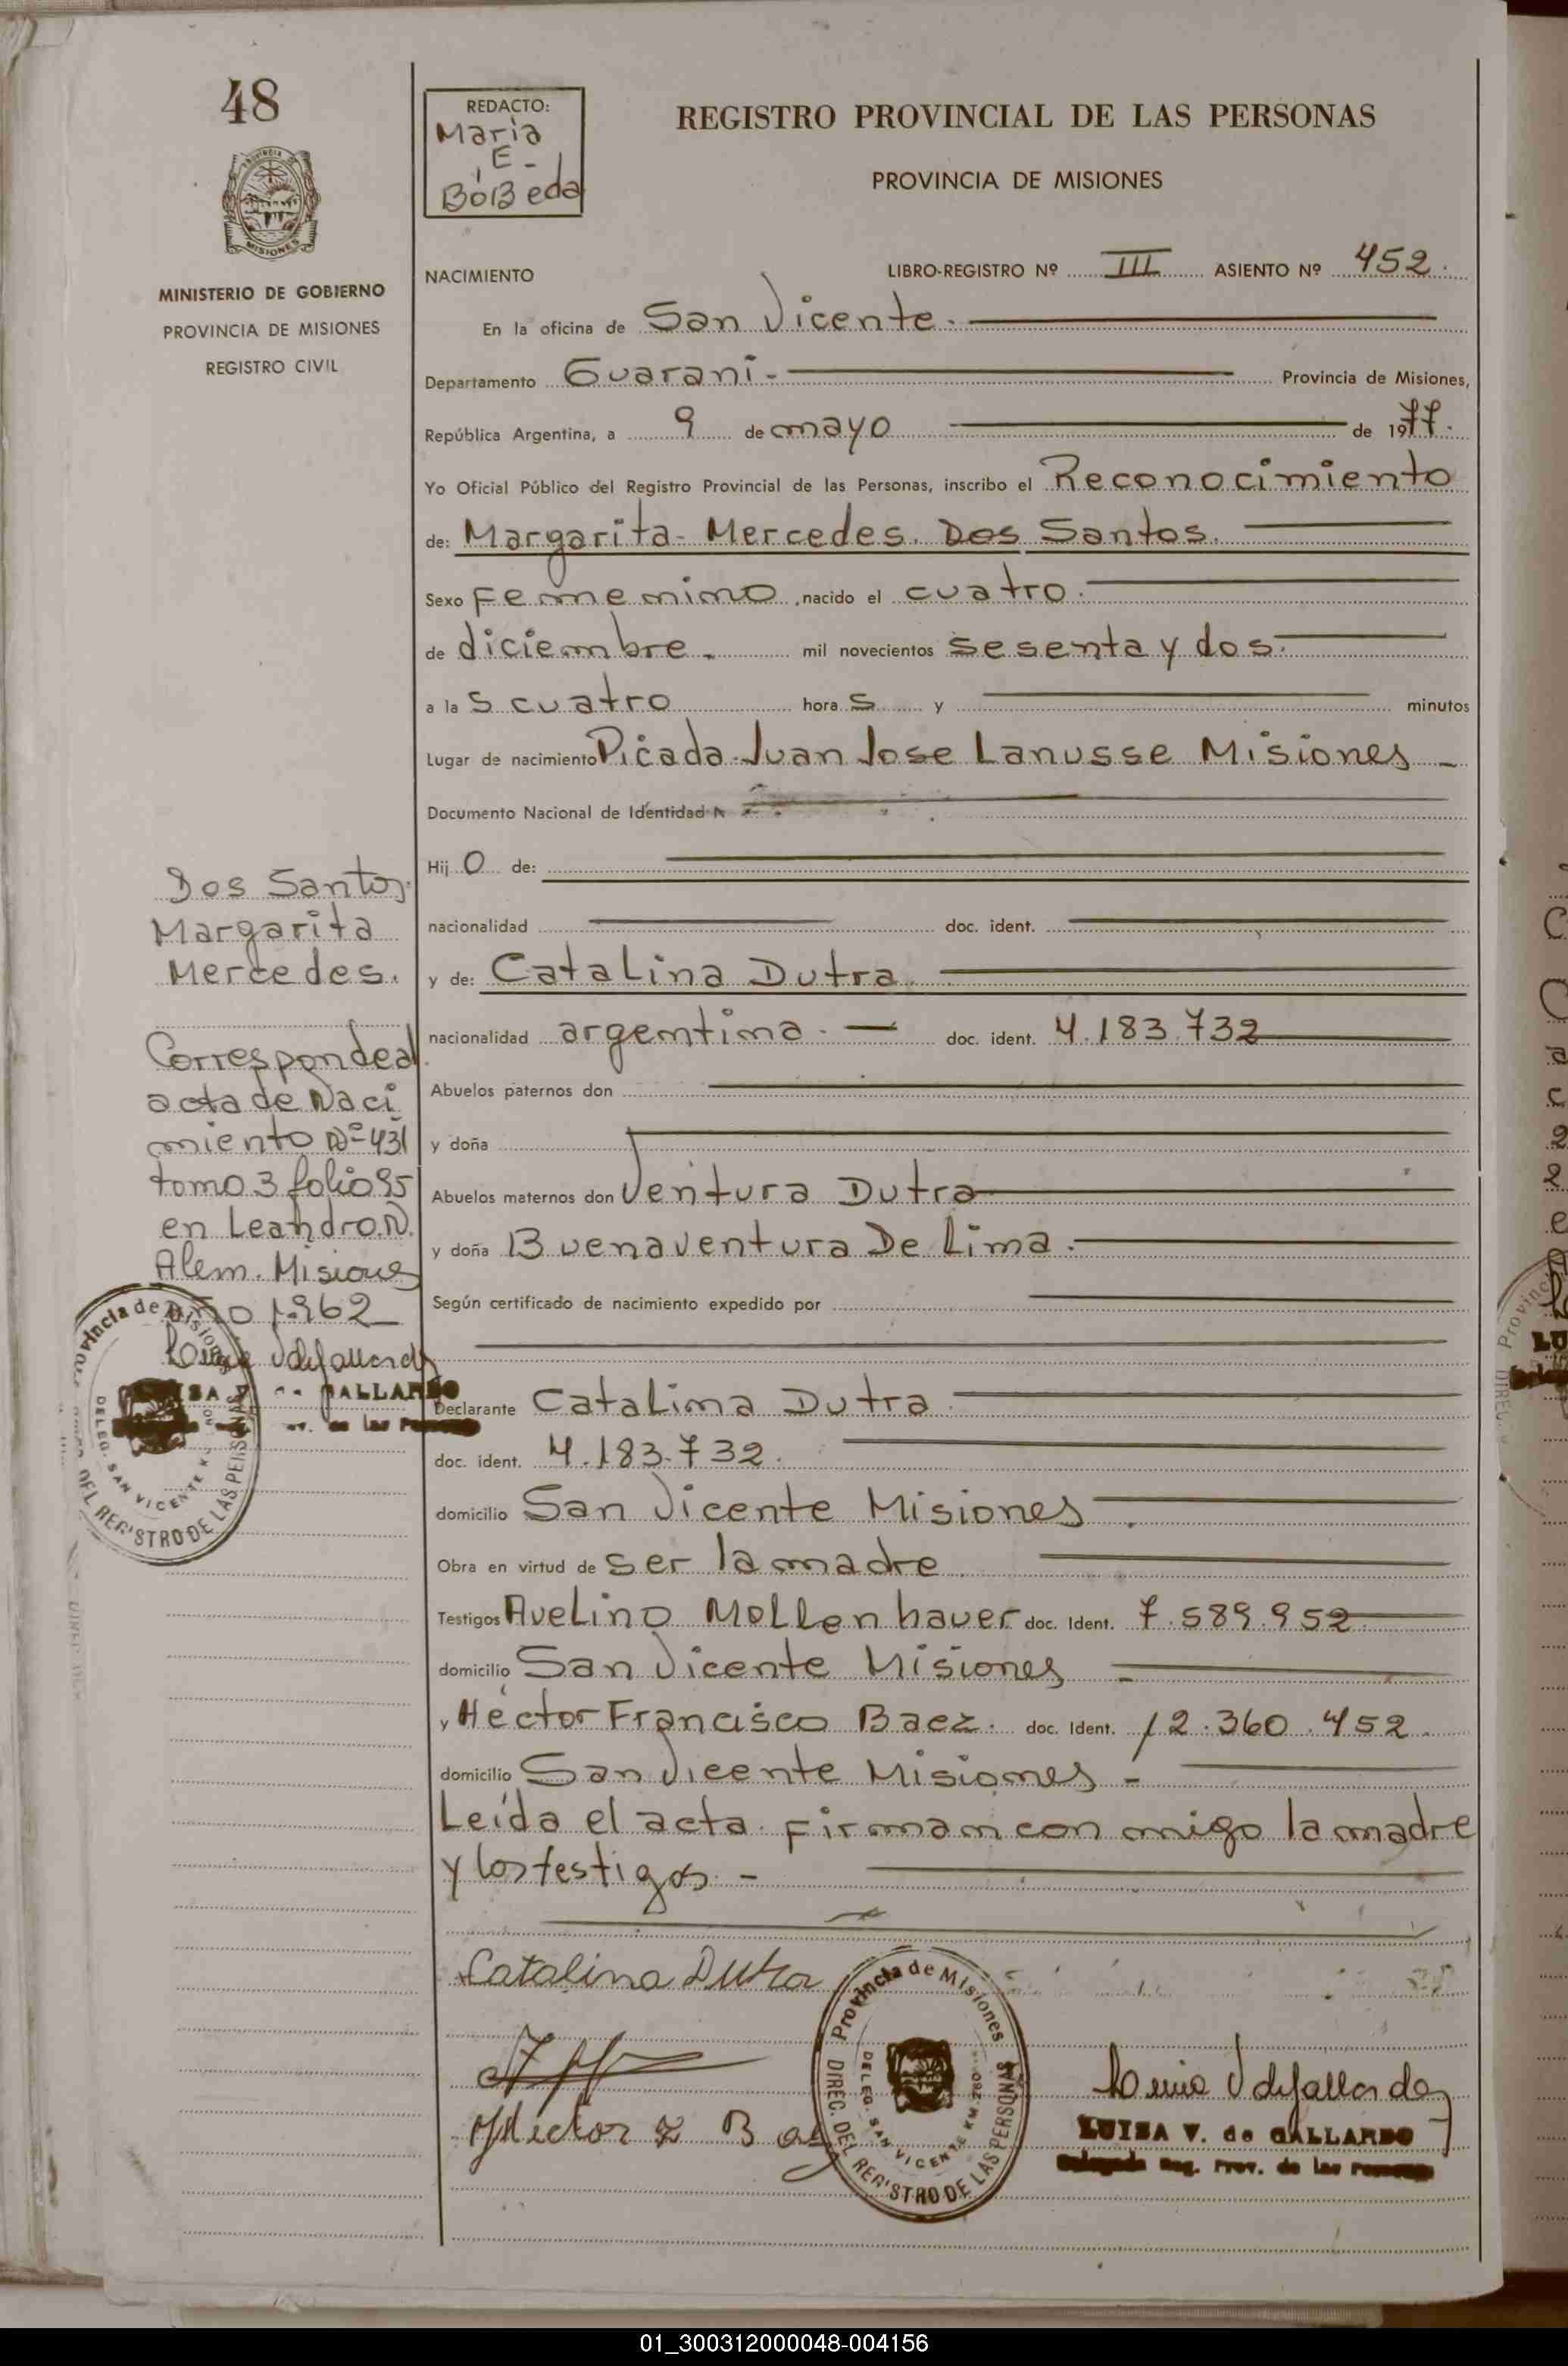 48
MINISTERIO DE GOBIERNO
PROVINCIA DE MISIONES
REGISTRO CIVIL
REDACTO:
Maria
E-
BóBeda
REGISTRO PROVINCIAL DE LAS PERSONAS
PROVINCIA DE MISIONES
NACIMIENTO LIBRO-REGISTRO Nº III ASIENTO Nº 452.
En la oficina de San Vicente.
Departamento Guaraní- Provincia de Misiones,
República Argentina, a 9 de mayo de 1977.
Yo Oficial Público del Registro Provincial de las Personas, inscribo el Reconocimiento
de: Margarita Mercedes. Dos Santos.
Sexo Femenino, nacido el cuatro.
de diciembre. mil novecientos sesenta y dos.
a las cuatro horas y minutos
Lugar de nacimiento Picada Juan Jose Lanusse Misiones -
Documento Nacional de Identidad N
HijO de:
nacionalidad doc. ident.
y de: Catalina Dutra.
nacionalidad argentina. - doc. ident. 4.183.732
Abuelos paternos don
y doña
Abuelos maternos don Ventura Dutra
y doña Buenaventura De Lima.
Según certificado de nacimiento expedido por
Declarante Catalina Dutra
doc. ident. 4.183.732.
domicilio San Vicente Misiones
Obra en virtud de ser la madre
Testigos Avelino Mollenhauer doc. Ident. 7.589.952
domicilio San Vicente Misiones
y Héctor Francisco Baez. doc. Ident. 12.360.452.
domicilio San Vicente Misiones -
Leída el acta. Firman conmigo la madre
y los testigos. -
Catalina Dutra
Héctor F Baez
LUISA V. de GALLARDO
Delegada Reg. Prov. de las Personas
Provincia de Misiones
DIREC. DEL REGISTRO DE LAS PERSONAS
DELEG. SAN VICENTE KM.260
Dos Santos
Margarita
Mercedes.
Corresponde al
acta de Naci
miento Nº 431
tomo 3 folio 95
en Leandro.N.
Alem. Misiones
1962
Provincia de Misiones
DEL REGISTRO DE LAS PERSONAS
DELEG. SAN VICENTE
GALLARDO
01_300312000048-004156